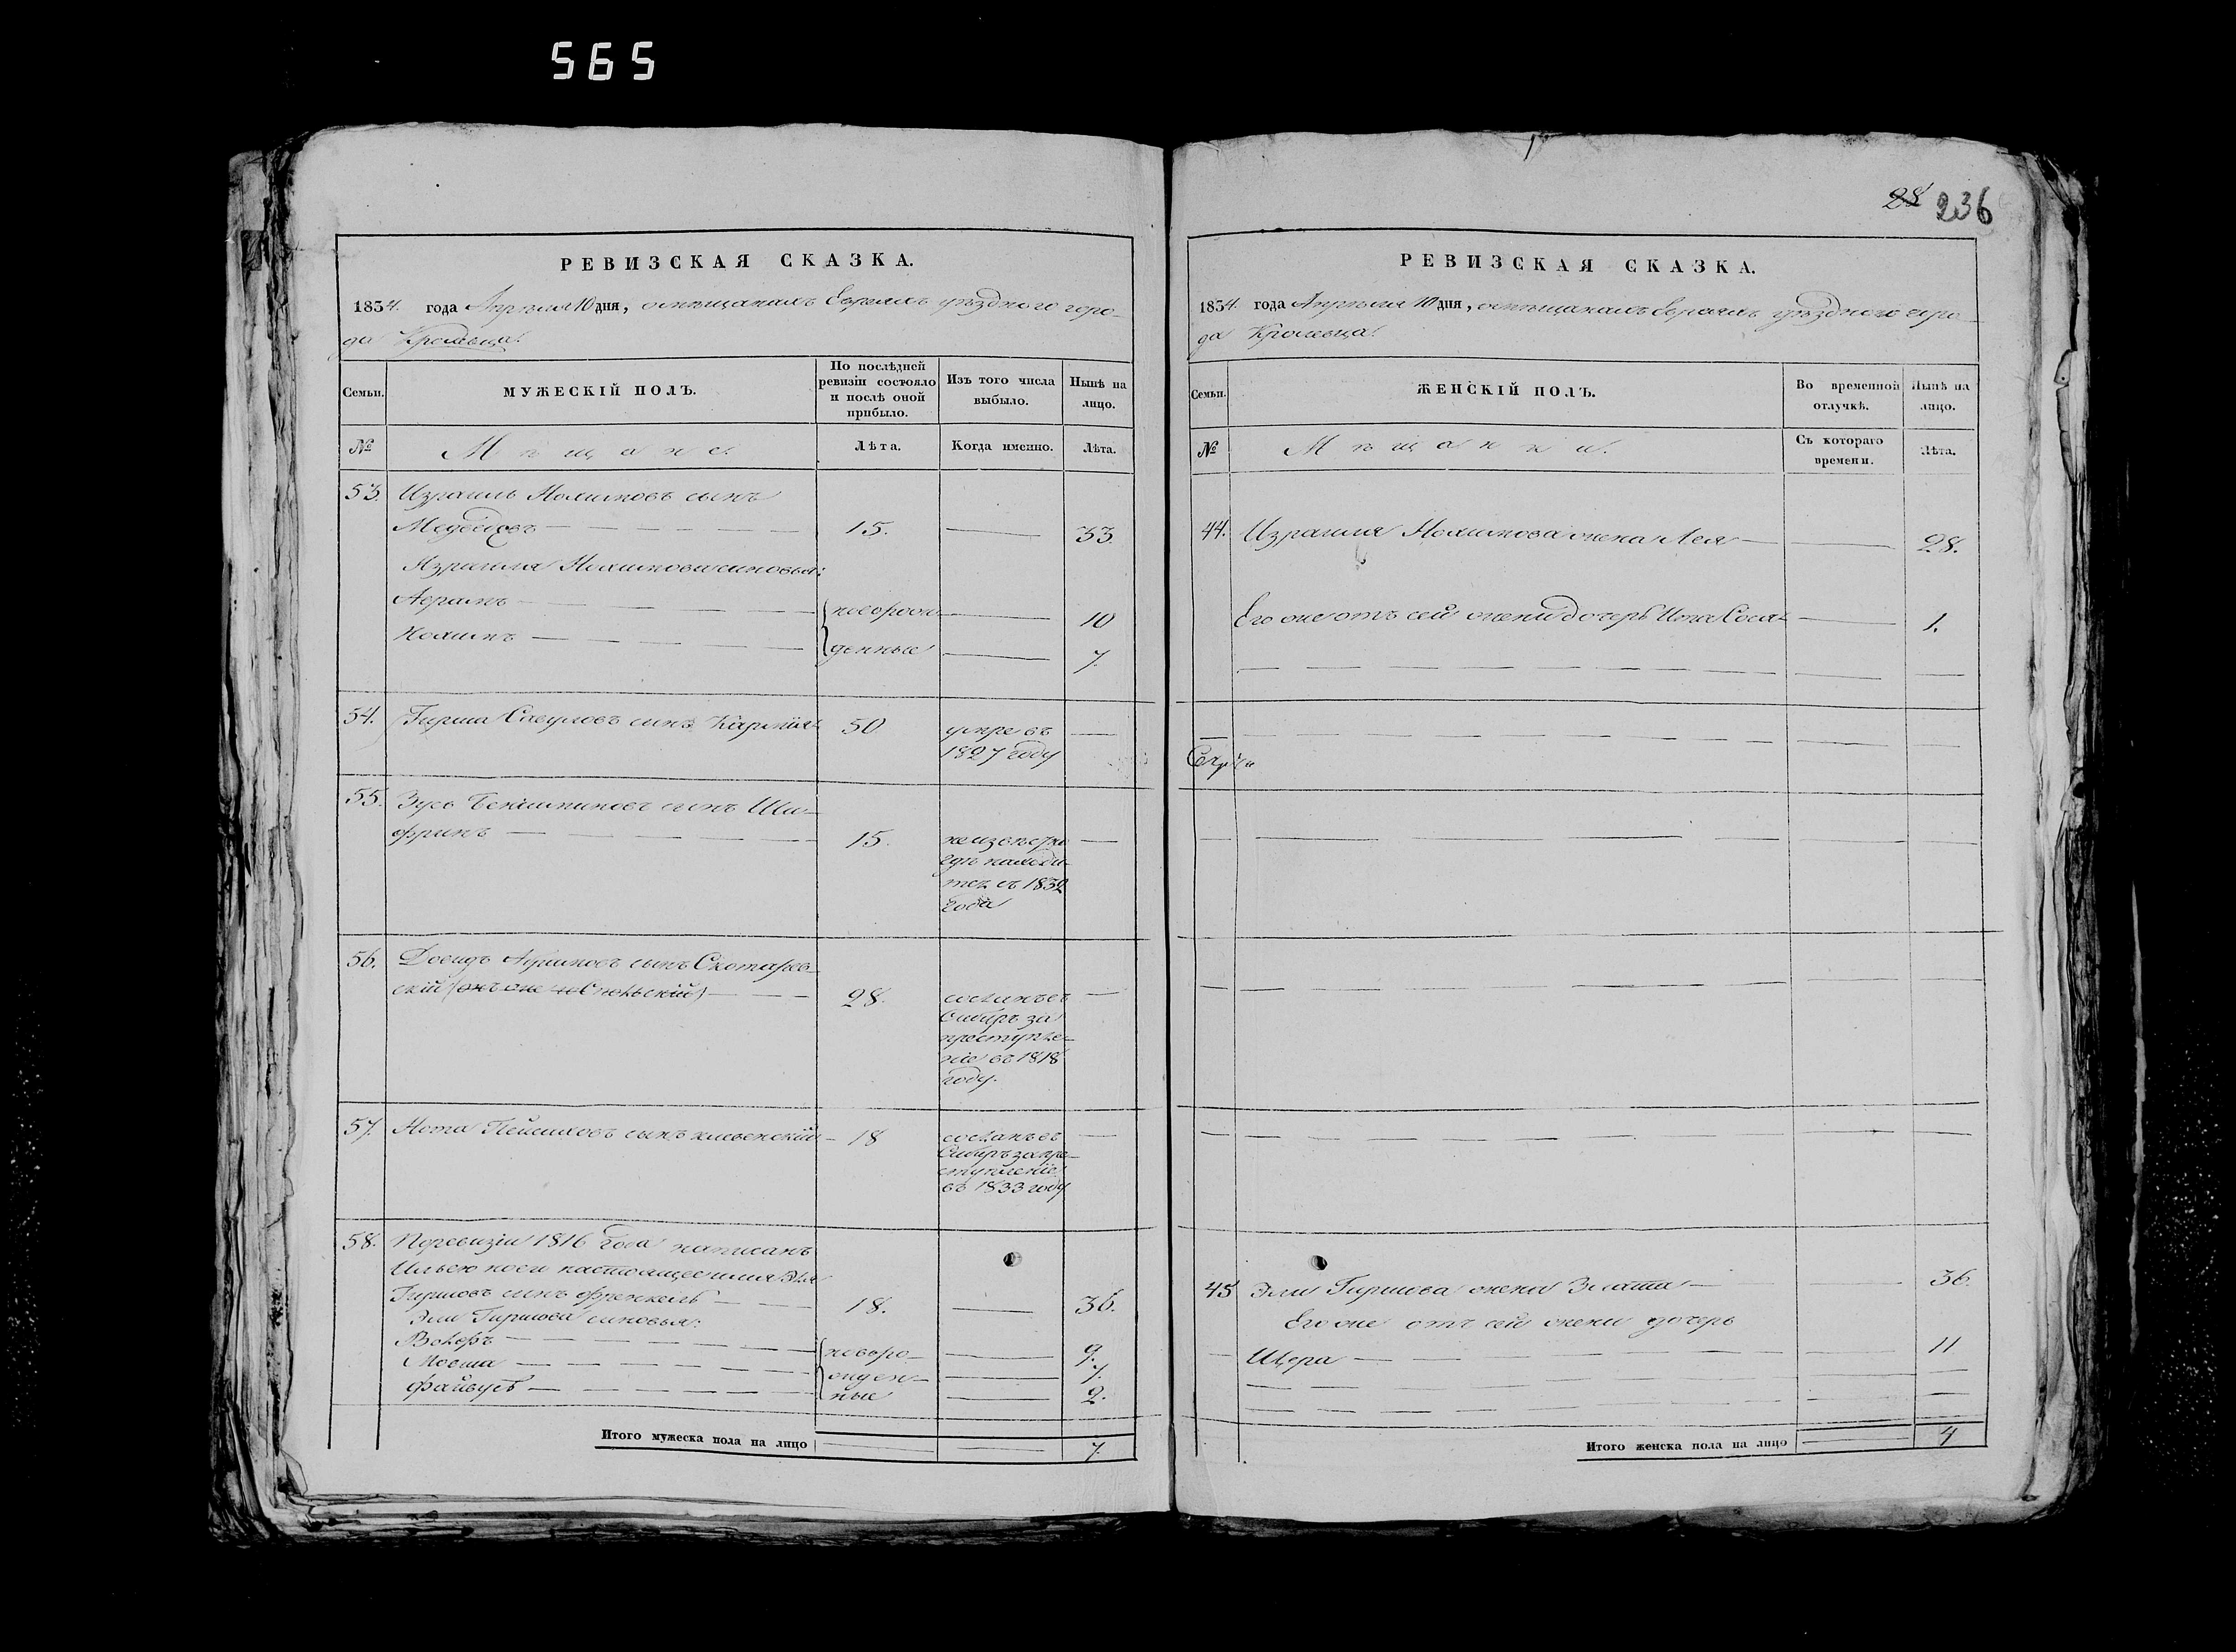 565
РЕВИЗСКАЯ СКАЗКА.
1834. года Апреля 10 дня, о мѣщанахъ Евреяхъ уѣзднаго горо-
да Кролевца.
Семьи. МУЖЕСКІЙ ПОЛЪ. По послѣдней ревизіи состояло и послѣ оной прибыло. Изъ того числа выбыло. Нынѣ на лицо.
№ Мѣщане. Лѣта. Когда именно. Лѣта.
53. Израиль Нохимовъ сынъ
Медведевъ 15. 33.
Израиля Нохимова сыновья:
Абрамъ новорож- 10
Нохимъ денные 7.
54. Гирша Савуловъ сынъ 50 умре въ
1827 году
55. Зусь сынъ Ши-
фринъ 15. неизвѣстно
гдѣ находи-
тся съ 1832
года
56. Довидъ Абрамовъ сынъ Скотарев-
скій 28. сосланъ въ
Сибирь за
преступле-
ніе въ 1818
году.
57. Нота Пейсиховъ сынъ 18 сосланъ въ
Сибирь за пре-
ступленіе
въ 1833 году
58. По ревизіи 1816 года написанъ
Ильею но настоящее имя Эля
Гиршовъ сынъ Френкель 18. 36.
Эли Гиршова сыновья:
новоро- 9.
Мовша жден- 7.
Файвусъ ные 2.
Итого мужеска пола на лицо 7.
28 236
РЕВИЗСКАЯ СКАЗКА.
1834. года Апреля 10 дня, о мѣщанахъ Евреяхъ уѣзднаго горо-
да Кролевца.
Семьи. ЖЕНСКІЙ ПОЛЪ. Во временной отлучкѣ. Нынѣ на лицо.
№ Мѣщанки. Съ котораго времени. Лѣта.
44. Израиля Нохимова жена Лея 28.
Его же отъ сей жены дочерь 1.
45 Эли Гиршова жена Злата 36.
Его же отъ сей жены дочерь
11
Итого женска пола на лицо 4